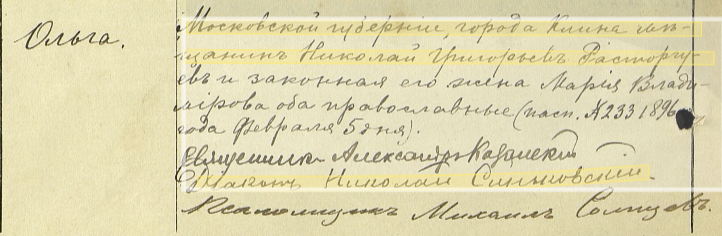 Ольга.
Московской губернiи, города Клина мѣ-
щанинъ Николай Григорьевъ Расторгу-
евъ и законная его жена Марiя Влади-
мiрова оба православные (пасп. № 233 1896
года Февраля 5 дня).
Священникъ Александръ Казанскiй
Дiаконъ Николай Синьковскiй.
Псаломщикъ Михаилъ Солнцевъ.